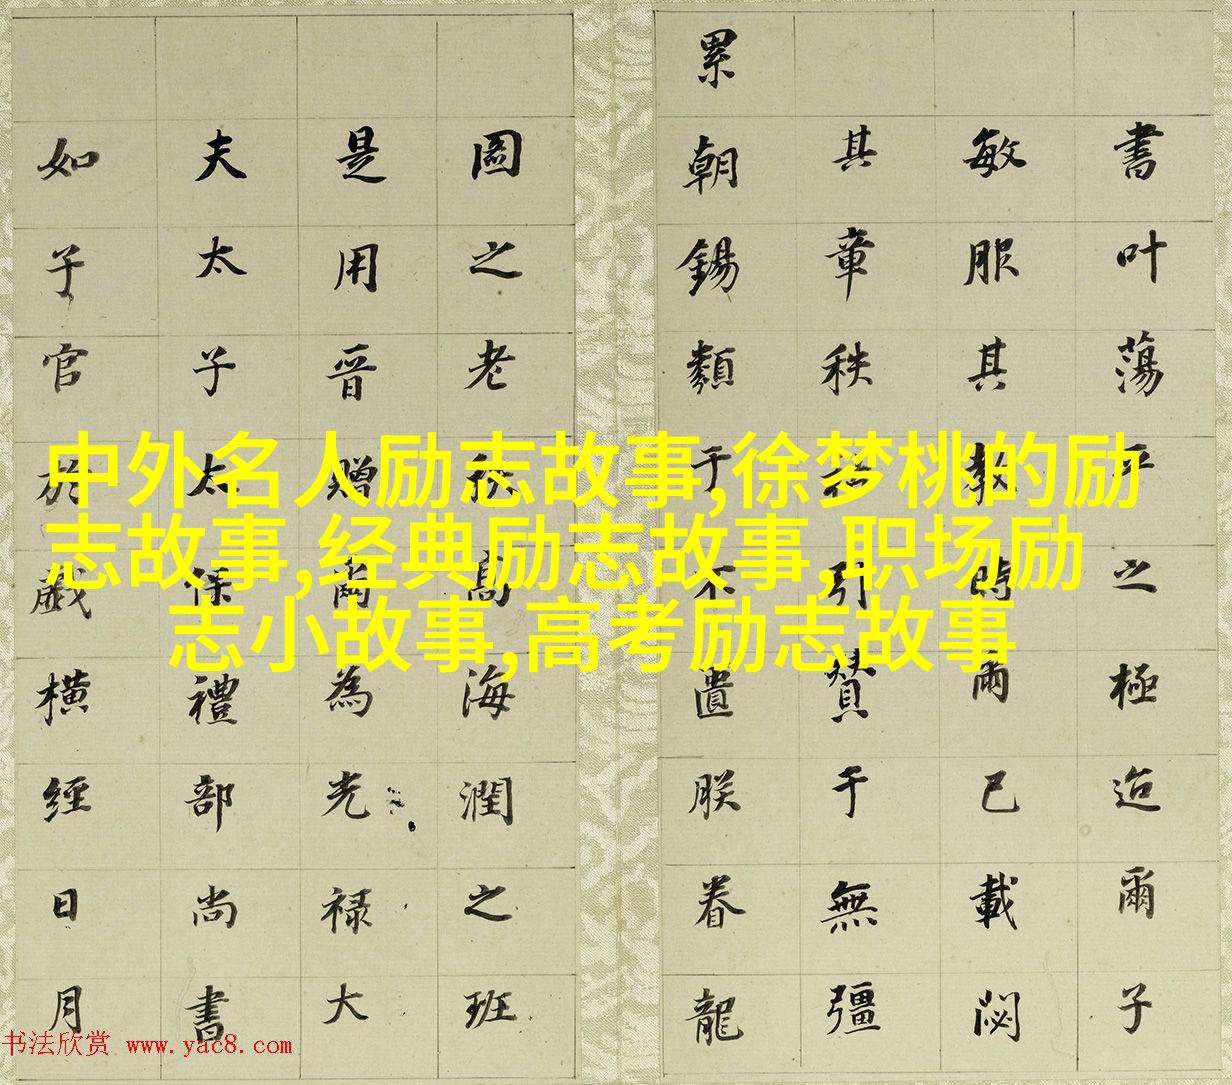 書叶蕩平之極迨爾子
敏服其教時爾已載閟
其章秩引贊于無彊
累朝錫類于不遺朕眷龍
圖之老秩高海潤之班
是用晉贈爾為光禄大
夫太子太保禮部尚書
如子官於戲橫經日月
中外名人励志故事,徐梦桃的励
志故事,经典励志故事,职场励
志小故事,高考励志故事
书法欣赏 www.yac8.com